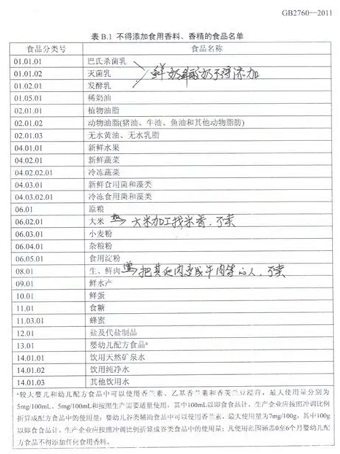 GB2760—2011
表 B.1 不得添加食用香料、香精的食品名单
食品分类号 食品名称
01.01.01 巴氏杀菌乳
01.01.02 灭菌乳
01.02.01 发酵乳
鲜奶酸奶不得添加
01.05.01 稀奶油
02.01.01 植物油脂
02.01.02 动物油脂(猪油、牛油、鱼油和其他动物脂肪)
02.01.03 无水黄油、无水乳脂
04.01.01 新鲜水果
04.02.01 新鲜蔬菜
04.02.02.01 冷冻蔬菜
04.03.01 新鲜食用菌和藻类
04.03.02.01 冷冻食用菌和藻类
06.01 原粮
06.02.01 大米 大米加工 米香,不卖
06.03.01 小麦粉
06.04.01 杂粮粉
06.05.01 食用淀粉
08.01 生、鲜肉 把其它肉变成牛肉 人,不卖
09.01 鲜水产
10.01 鲜蛋
11.01 食糖
11.03.01 蜂蜜
12.01 盐及代盐制品
13.01 婴幼儿配方食品a
14.01.01 饮用天然矿泉水
14.01.02 饮用纯净水
14.01.03 其他饮用水
a较大婴儿和幼儿配方食品中可以使用香兰素、乙基香兰素和香荚兰豆浸膏,最大使用量分别为
5mg/100mL、5mg/100mL和按照生产需要适量使用,其中100mL以即食食品计,生产企业应按照冲调比例
折算成配方食品中的使用量;婴幼儿谷类辅助食品中可以使用香兰素,最大使用量为7mg/100g,其中100g
以即食食品计,生产企业应按照冲调比例折算成谷类食品中的使用量;凡使用范围涵盖0至6个月婴幼儿配
方食品不得添加任何食用香料。